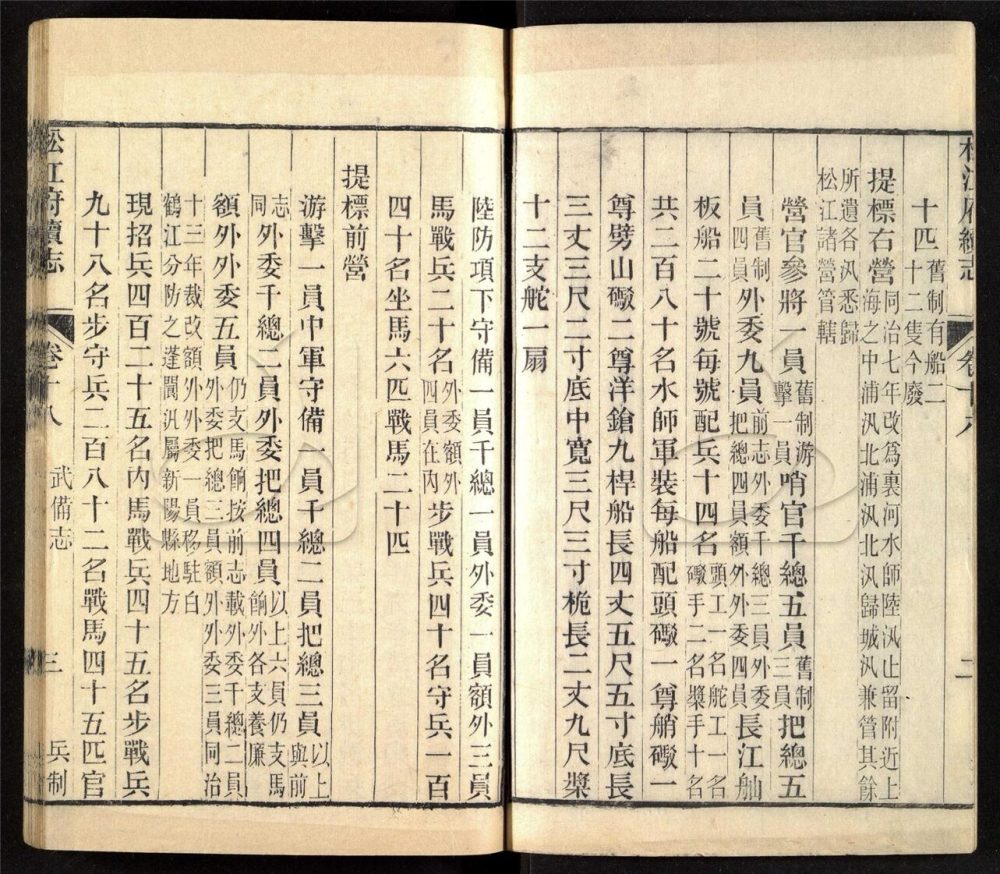 松江府續志 卷十八 二
十匹舊制有船二
十二隻今廢
提標右營同治七年改爲裏河水師陸汛止留附近上
海之中浦汛北浦汛北汛歸城汛兼管其餘
所遺各汛悉歸
松江諸營管轄
營官參將一員舊制游擊一員哨官千總五員舊制三員把總五
員舊制四員外委九員前志外委千總三員外委把總四員額外外委四員長江舢
板船二十號每號配兵十四名頭工一名舵工一名礮手二名槳手十名
共二百八十名水師軍裝每船配頭礮一尊艄礮一
尊劈山礮二尊洋鎗九桿船長四丈五尺五寸底長
三丈三尺二寸底中寬三尺三寸桅長二丈九尺槳
十二支舵一扇
陸防項下守備一員千總一員外委一員額外三員
馬戰兵二十名外委額外四員在內步戰兵四十名守兵一百
四十名坐馬六匹戰馬二十匹
提標前營
游擊一員中軍守備一員千總二員把總三員以上與前
志同外委千總二員外委把總四員以上六員仍支馬餉外各支養廉
額外外委五員仍支馬餉按前志載外委千總二員外委把總三員額外外委三員同治
十三年裁改額外外委一員移駐白
鶴江分防之蓬閬汛屬新陽縣地方
現招兵四百二十五名內馬戰兵四十五名步戰兵
九十八名步守兵二百八十二名戰馬四十五匹官
松江府續志 卷十八 武備志 三 兵制